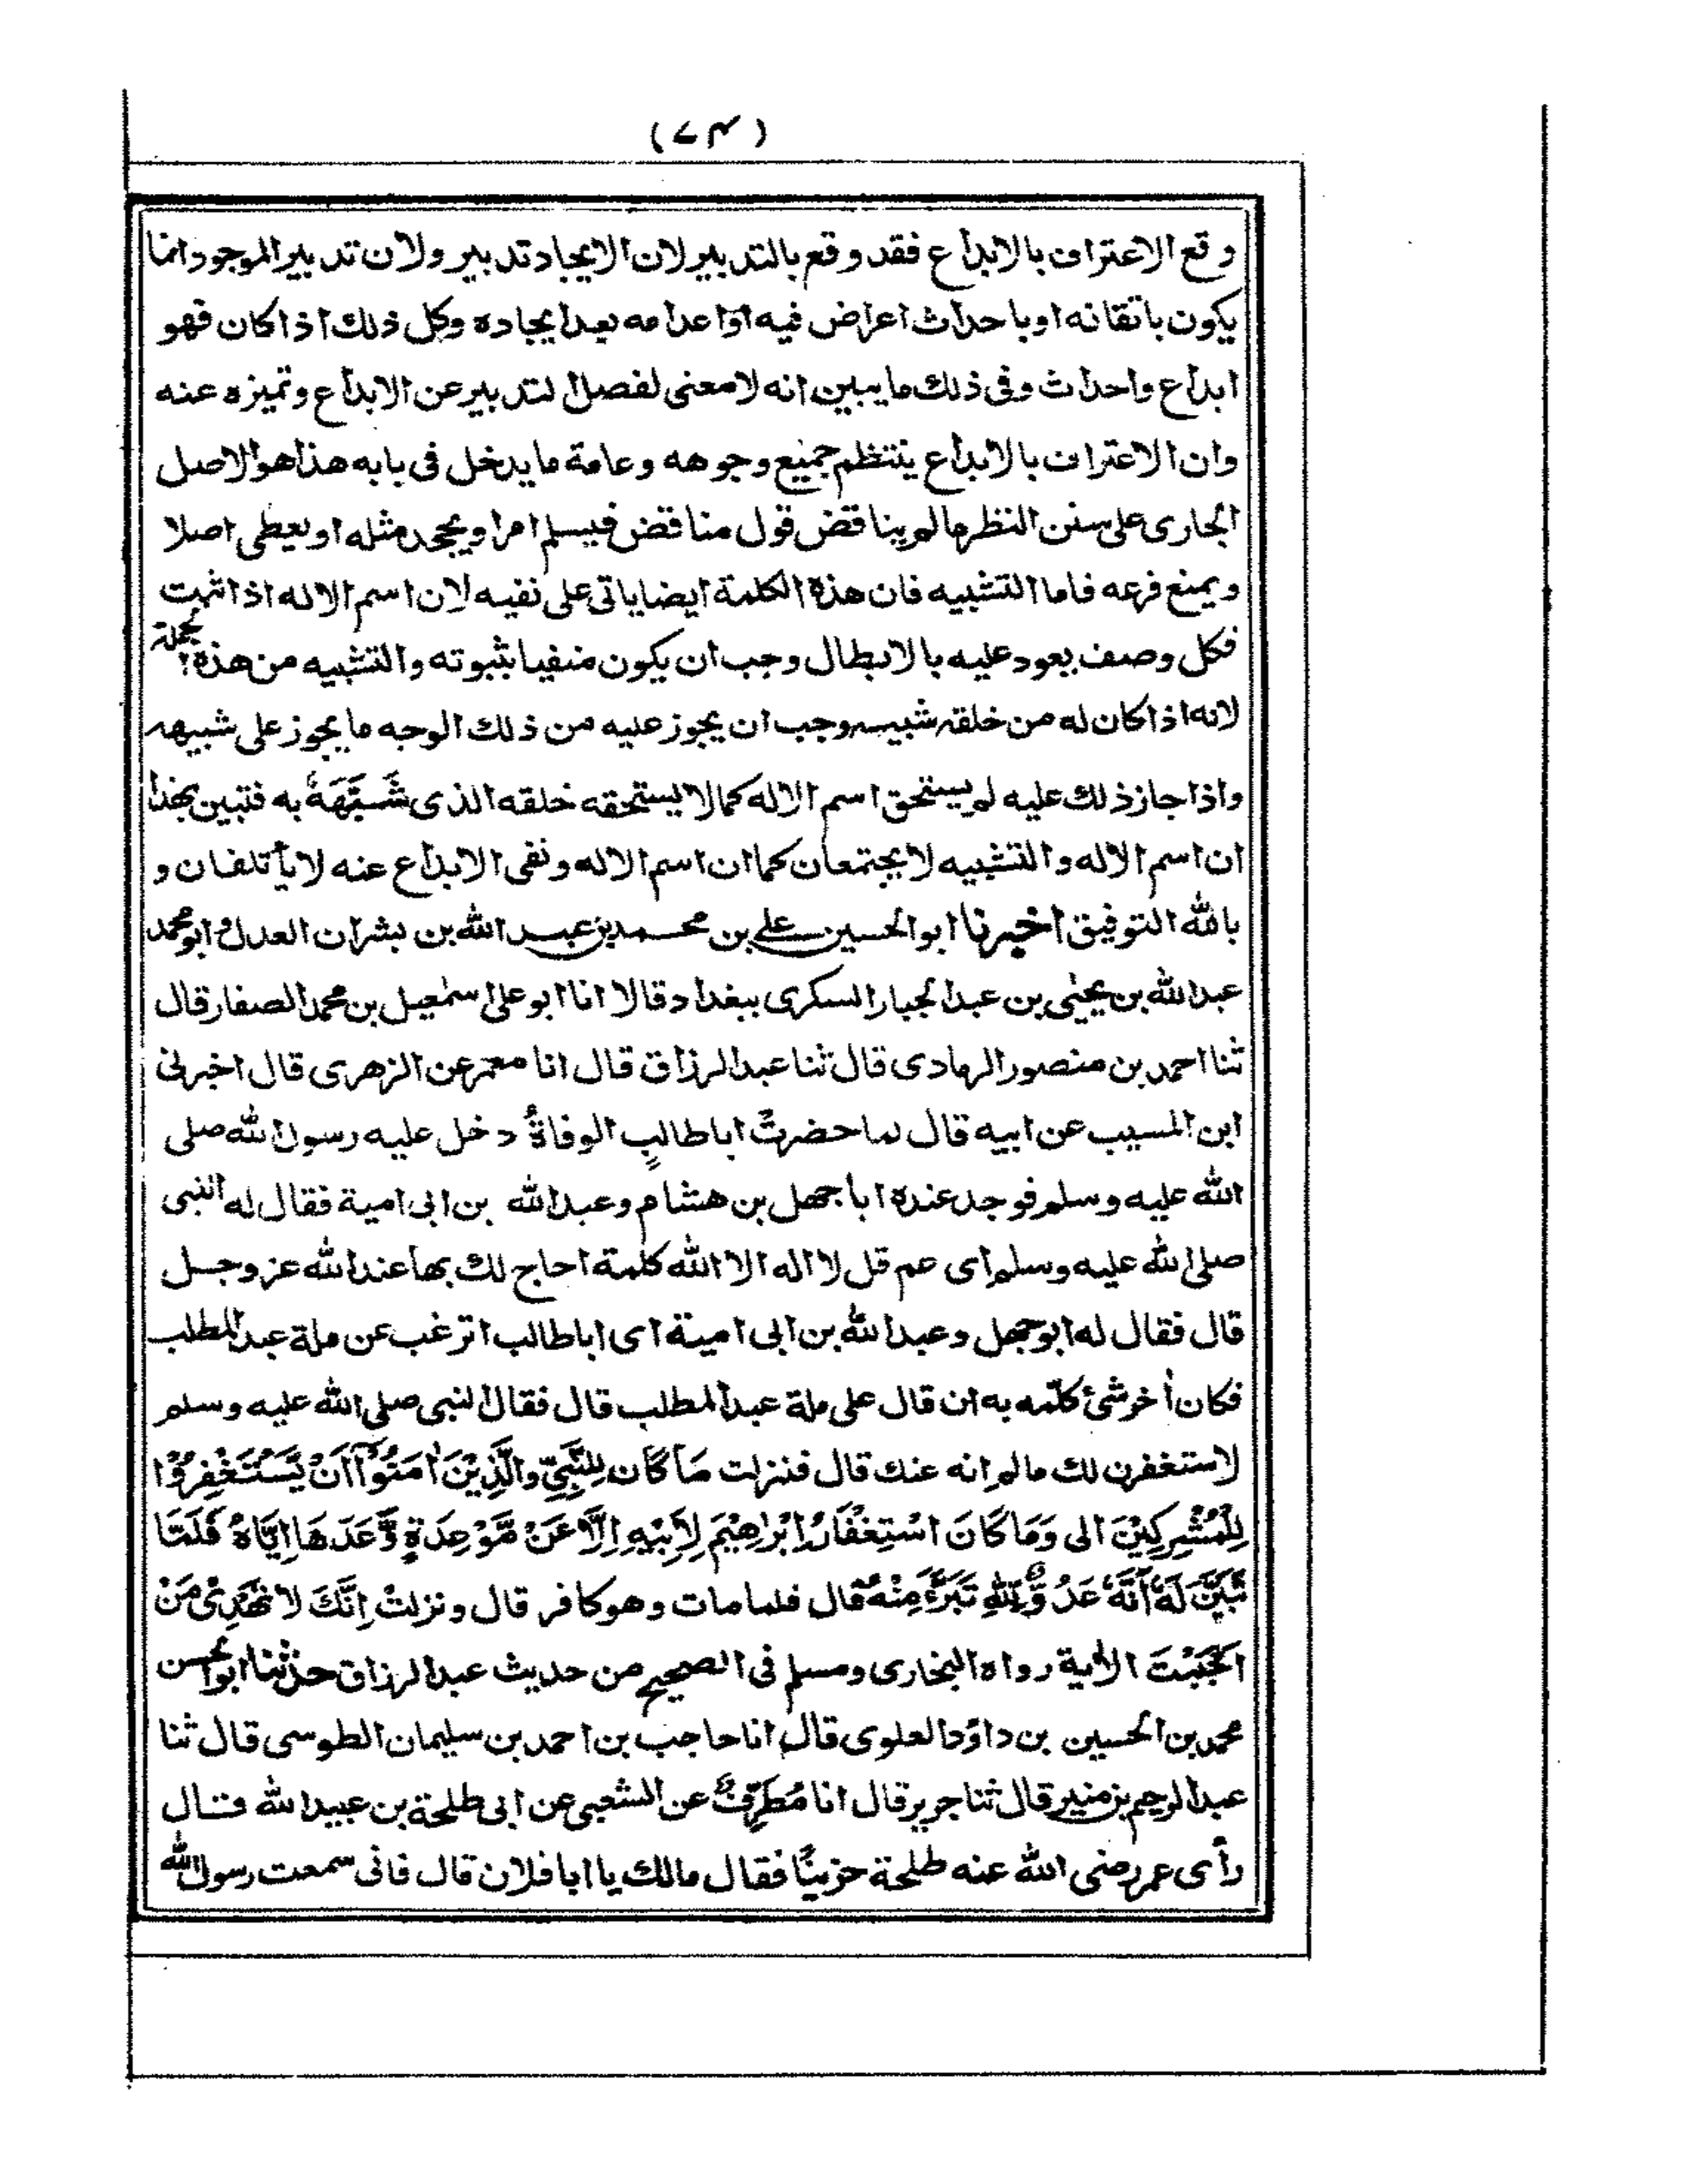 (۷۴)
وقع الاعتراف بالابداع فقد وقع بالتدبير لان الايجاد تدبير ولان تدبير الموجود انما
يكون باتقانه او باحداث اعراض فيه او اعدامه بعد ايجاده وكل ذلك اذا كان فهو
ابداع واحداث وفى ذلك ما يبين انه لا معنى لفصل التدبير عن الابداع وتميزه عنه
وان الاعتراف بالابداع ينتظم جميع وجوهه وعامة ما يدخل فى بابه هذا هو الاصل
الجارى على سنن النظر مالم يناقض قول مناقض فيسلم امرا ويجحد مثله او يعطى اصلا
ويمنع فرعه فاما التشبيه فان هذه الكلمة ايضا ياتى على نفيه لان اسم الاله اذا ثبت
فكل وصف يعود عليه بالابطال وجب ان يكون منفيا بثبوته والتشبيه من هذه الجملة
لانه اذا كان له من خلقه شبيه وجب ان يجوز عليه من ذلك الوجه ما يجوز على شبيهه
واذا جاز ذلك عليه لم يستحق اسم الاله كما لا يستحقه خلقه الذى شَبَّهَهُ به فتبين بهذا
ان اسم الاله والتشبيه لا يجتمعان كما ان اسم الاله ونفى الابداع عنه لا يأتلفان و
بالله التوفيق اخبرنا ابو الحسين على بن محمد بن عبد الله بن بشران العدل وابو محمد
عبد الله بن يحيى بن عبد الجبار السكرى ببغداد قالا انا ابو على اسمٰعيل بن محمد الصفار قال
ثنا احمد بن منصور الرمادى قال ثنا عبد الرزاق قال انا معمر عن الزهرى قال اخبرنى
ابن المسيب عن ابيه قال لما حضرتْ ابا طالبٍ الوفاةُ دخل عليه رسول الله صلى
الله عليه وسلم فوجد عنده ابا جهل بن هشام وعبد الله بن ابى امية فقال له النبى
صلى الله عليه وسلم اى عم قل لا اله الا الله كلمة احاج لك بها عند الله عز وجل
قال فقال له ابو جهل وعبد الله بن ابى امية اى ابا طالب اترغب عن ملة عبد المطلب
فكان أخر شئ كلّمه به ان قال على ملة عبد المطلب قال فقال النبى صلى الله عليه وسلم
لاستغفرن لك مالم انه عنك قال فنزلت مَا كَانَ لِلنَّبِيِّ والَّذِيْنَ اٰمَنُوْٓا اَنْ يَّسْتَغْفِرُوْا
لِلْمُشْرِكِيْنَ الى وَمَا كَانَ اسْتِغْفَارُ اِبْرَاهِيْمَ لِاَبِيْهِ اِلَّا عَنْ مَّوْعِدَةٍ وَّعَدَهَا اِيَّاهُ فَلَمَّا
تَبَيَّنَ لَهٗ اَنَّهٗ عَدُوٌّ لِّلّٰهِ تَبَرَّءَ مِنْهُ قال فلما مات وهو كافر قال ونزلتْ اِنَّكَ لَا تَهْدِىْ مَنْ
اَحْبَبْتَ الأية رواه البخارى ومسلم فى الصحيح من حديث عبد الرزاق حدثنا ابو الحسن
محمد بن الحسين بن داؤد العلوى قال انا حاجب بن احمد بن سليمان الطوسى قال ثنا
عبد الرحيم بن منير قال ثنا جرير قال انا مُطَرِّفٌ عن الشعبى عن ابى طلحة بن عبيد الله قال
رأى عمر رضى الله عنه طلحة حزينًا فقال مالك يا ابا فلان قال فانى سمعت رسول الله